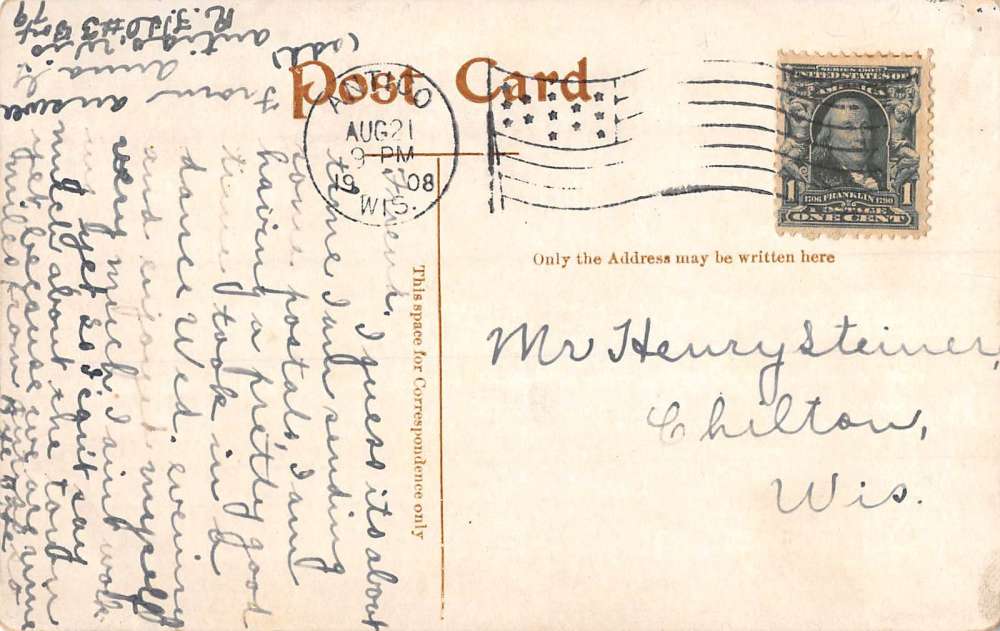 Post Card
ANTIGO
AUG 21
9 PM
1908
WIS.
SERIES 1902
UNITED STATES OF
AMERICA
1 1706 FRANKLIN 1790 1
ONE CENT
Only the Address may be written here
This space for Correspondence only
Mr Henry Steiner,
Chilton,
Wis.
Friend, I guess its about
time I am sending
some postals, I am
having a pretty good
time took in a
dance Wed. evening
and enjoyed myself
very much. I aint work
yet so I can't say
much about the town
yet because we are nine
miles from
answer
From Anna
(add) Antigo, Wis
R.F.D. #3 Box
79